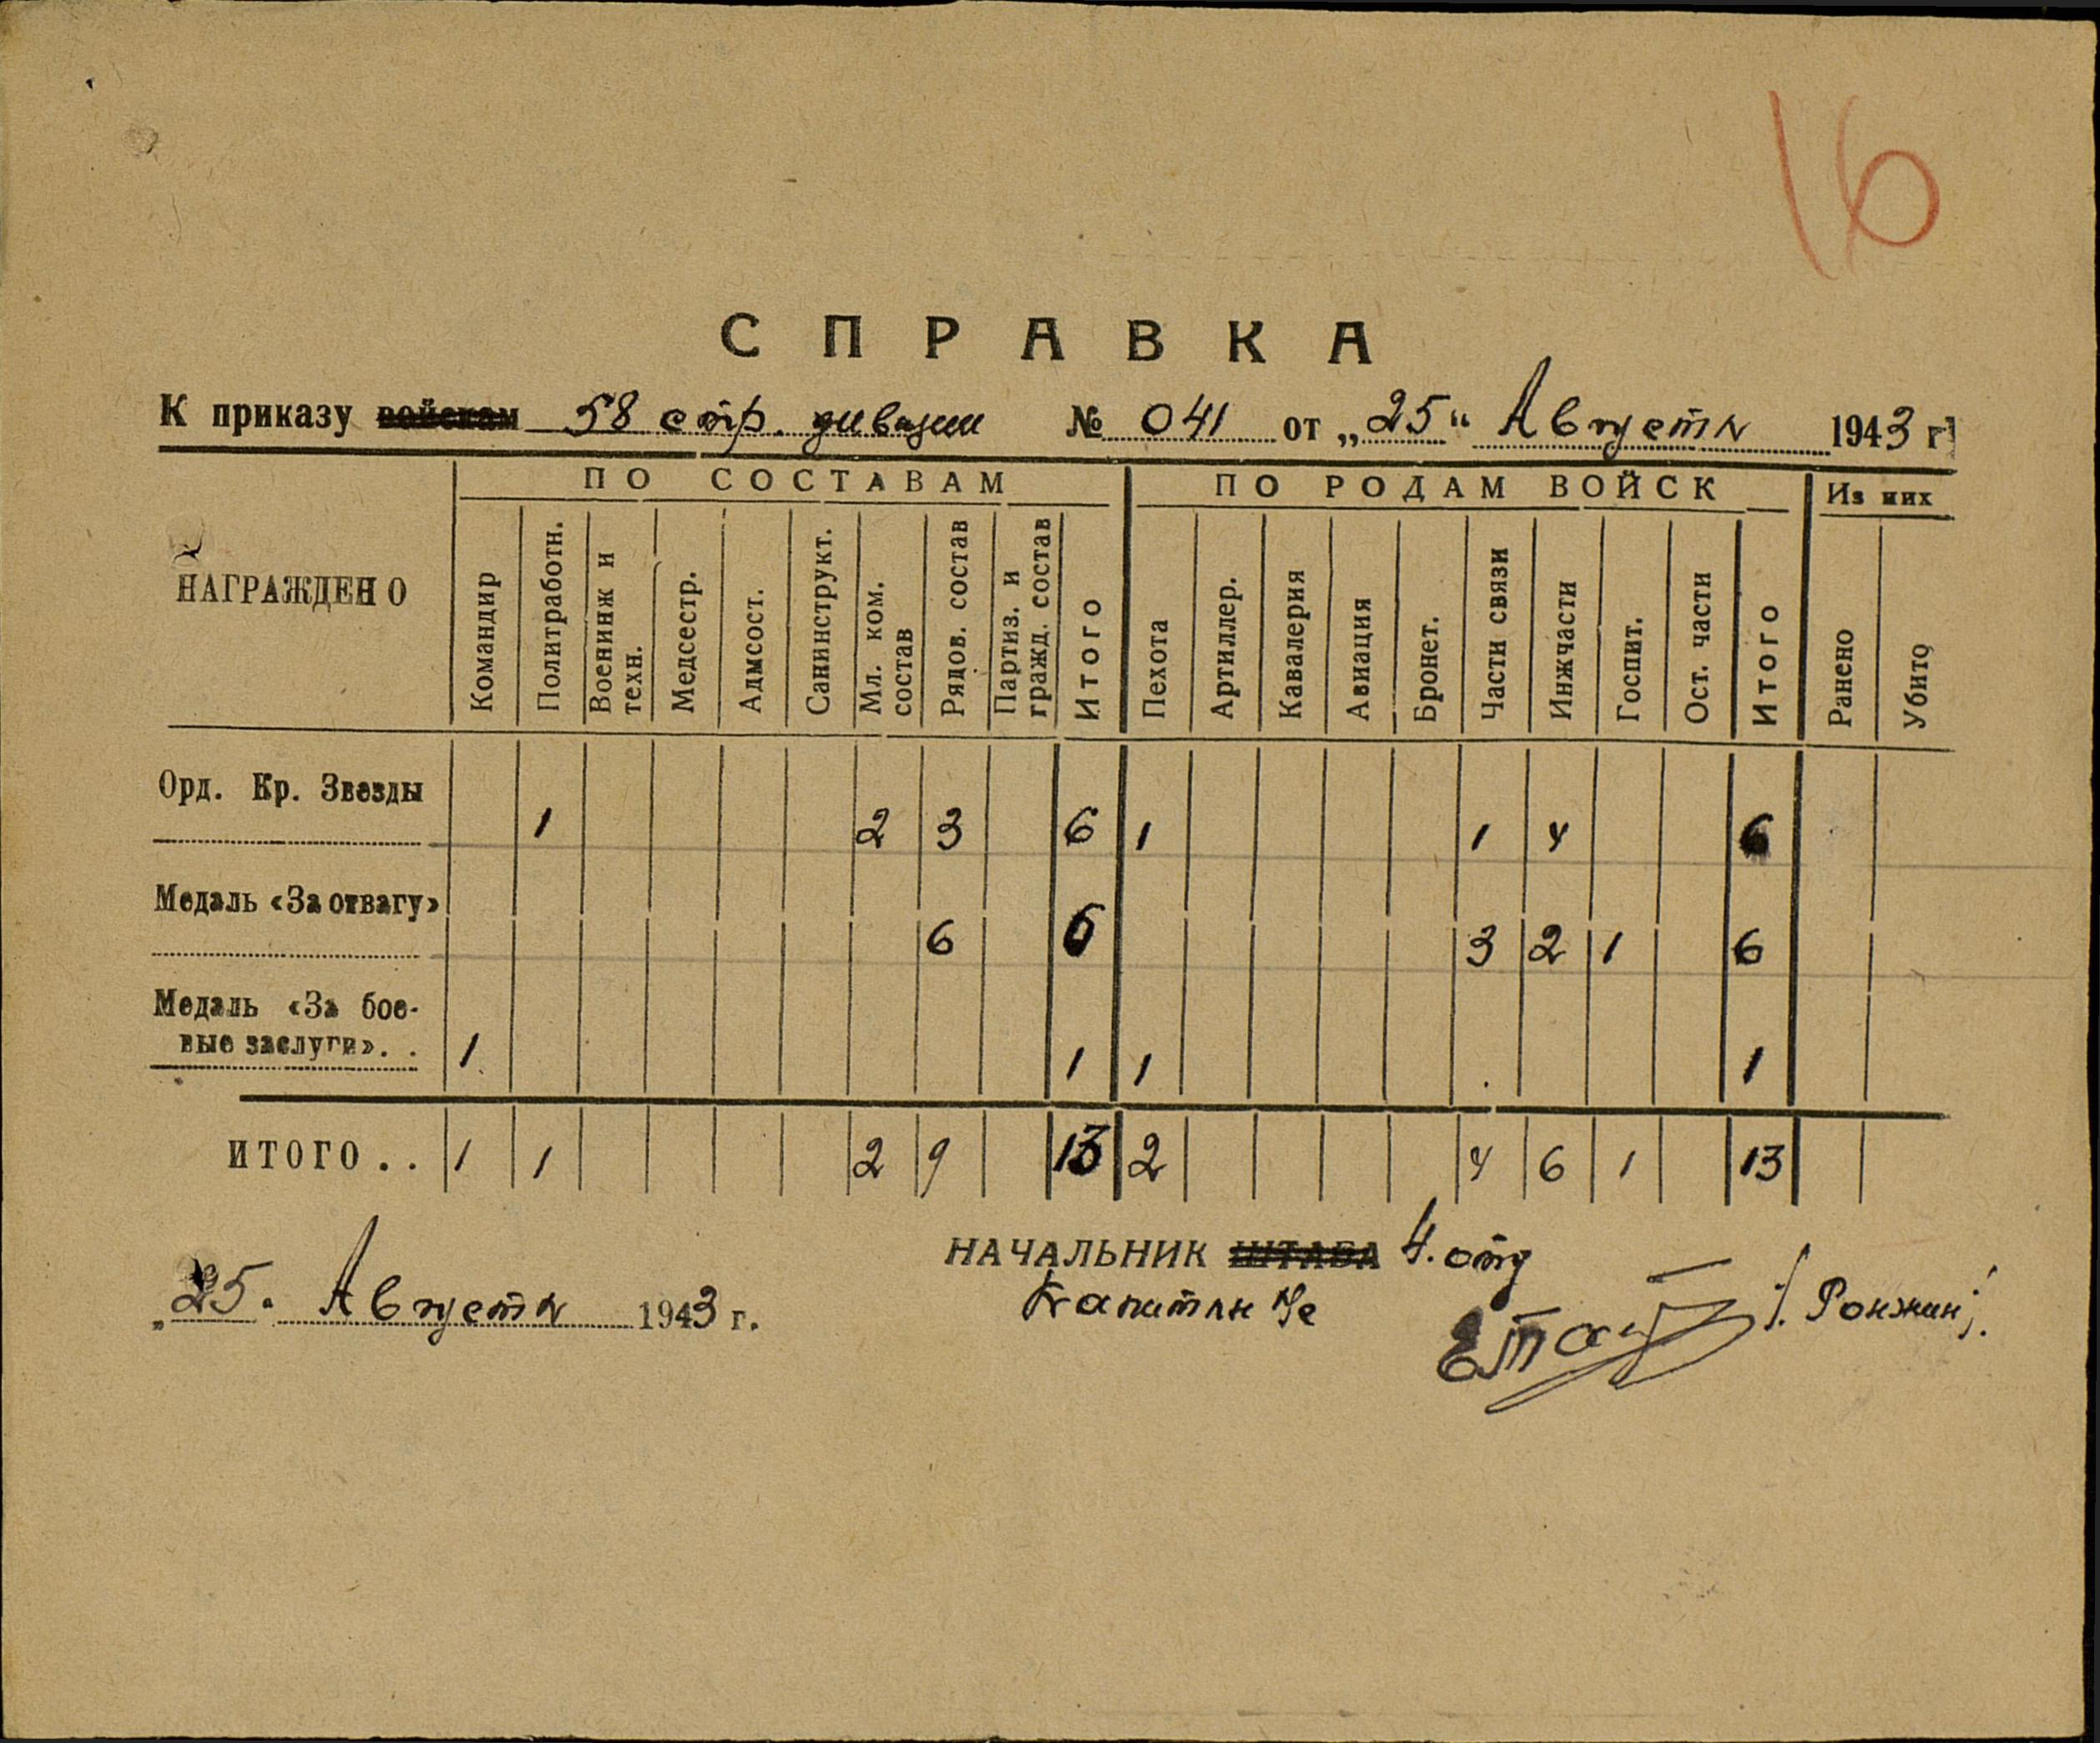 16
СПРАВКА
К приказу войскам 58 стр. дивизии № 041 от „25“ Августа 1943 г.
НАГРАЖДЕНО
ПО СОСТАВАМ
ПО РОДАМ ВОЙСК
Из них
Командир
Политработн.
Военинж и техн.
Медсестр.
Адмсост.
Санинструкт.
Мл. ком. состав
Рядов. состав
Партиз. и гражд. состав
Итого
Пехота
Артиллер.
Кавалерия
Авиация
Бронет.
Части связи
Инжчасти
Госпит.
Ост. части
Итого
Ранено
Убито
Орд. Кр. Звезды 1 2 3 6 1 1 4 6
Медаль «За отвагу» 6 6 3 2 1 6
Медаль «За бое-
вые заслуги». . 1 1 1 1
ИТОГО . . 1 1 2 9 13 2 4 6 1 13
НАЧАЛЬНИК ШТАБА 4. отд
„25. Августа 1943 г.
Капитан /Ронжин/.